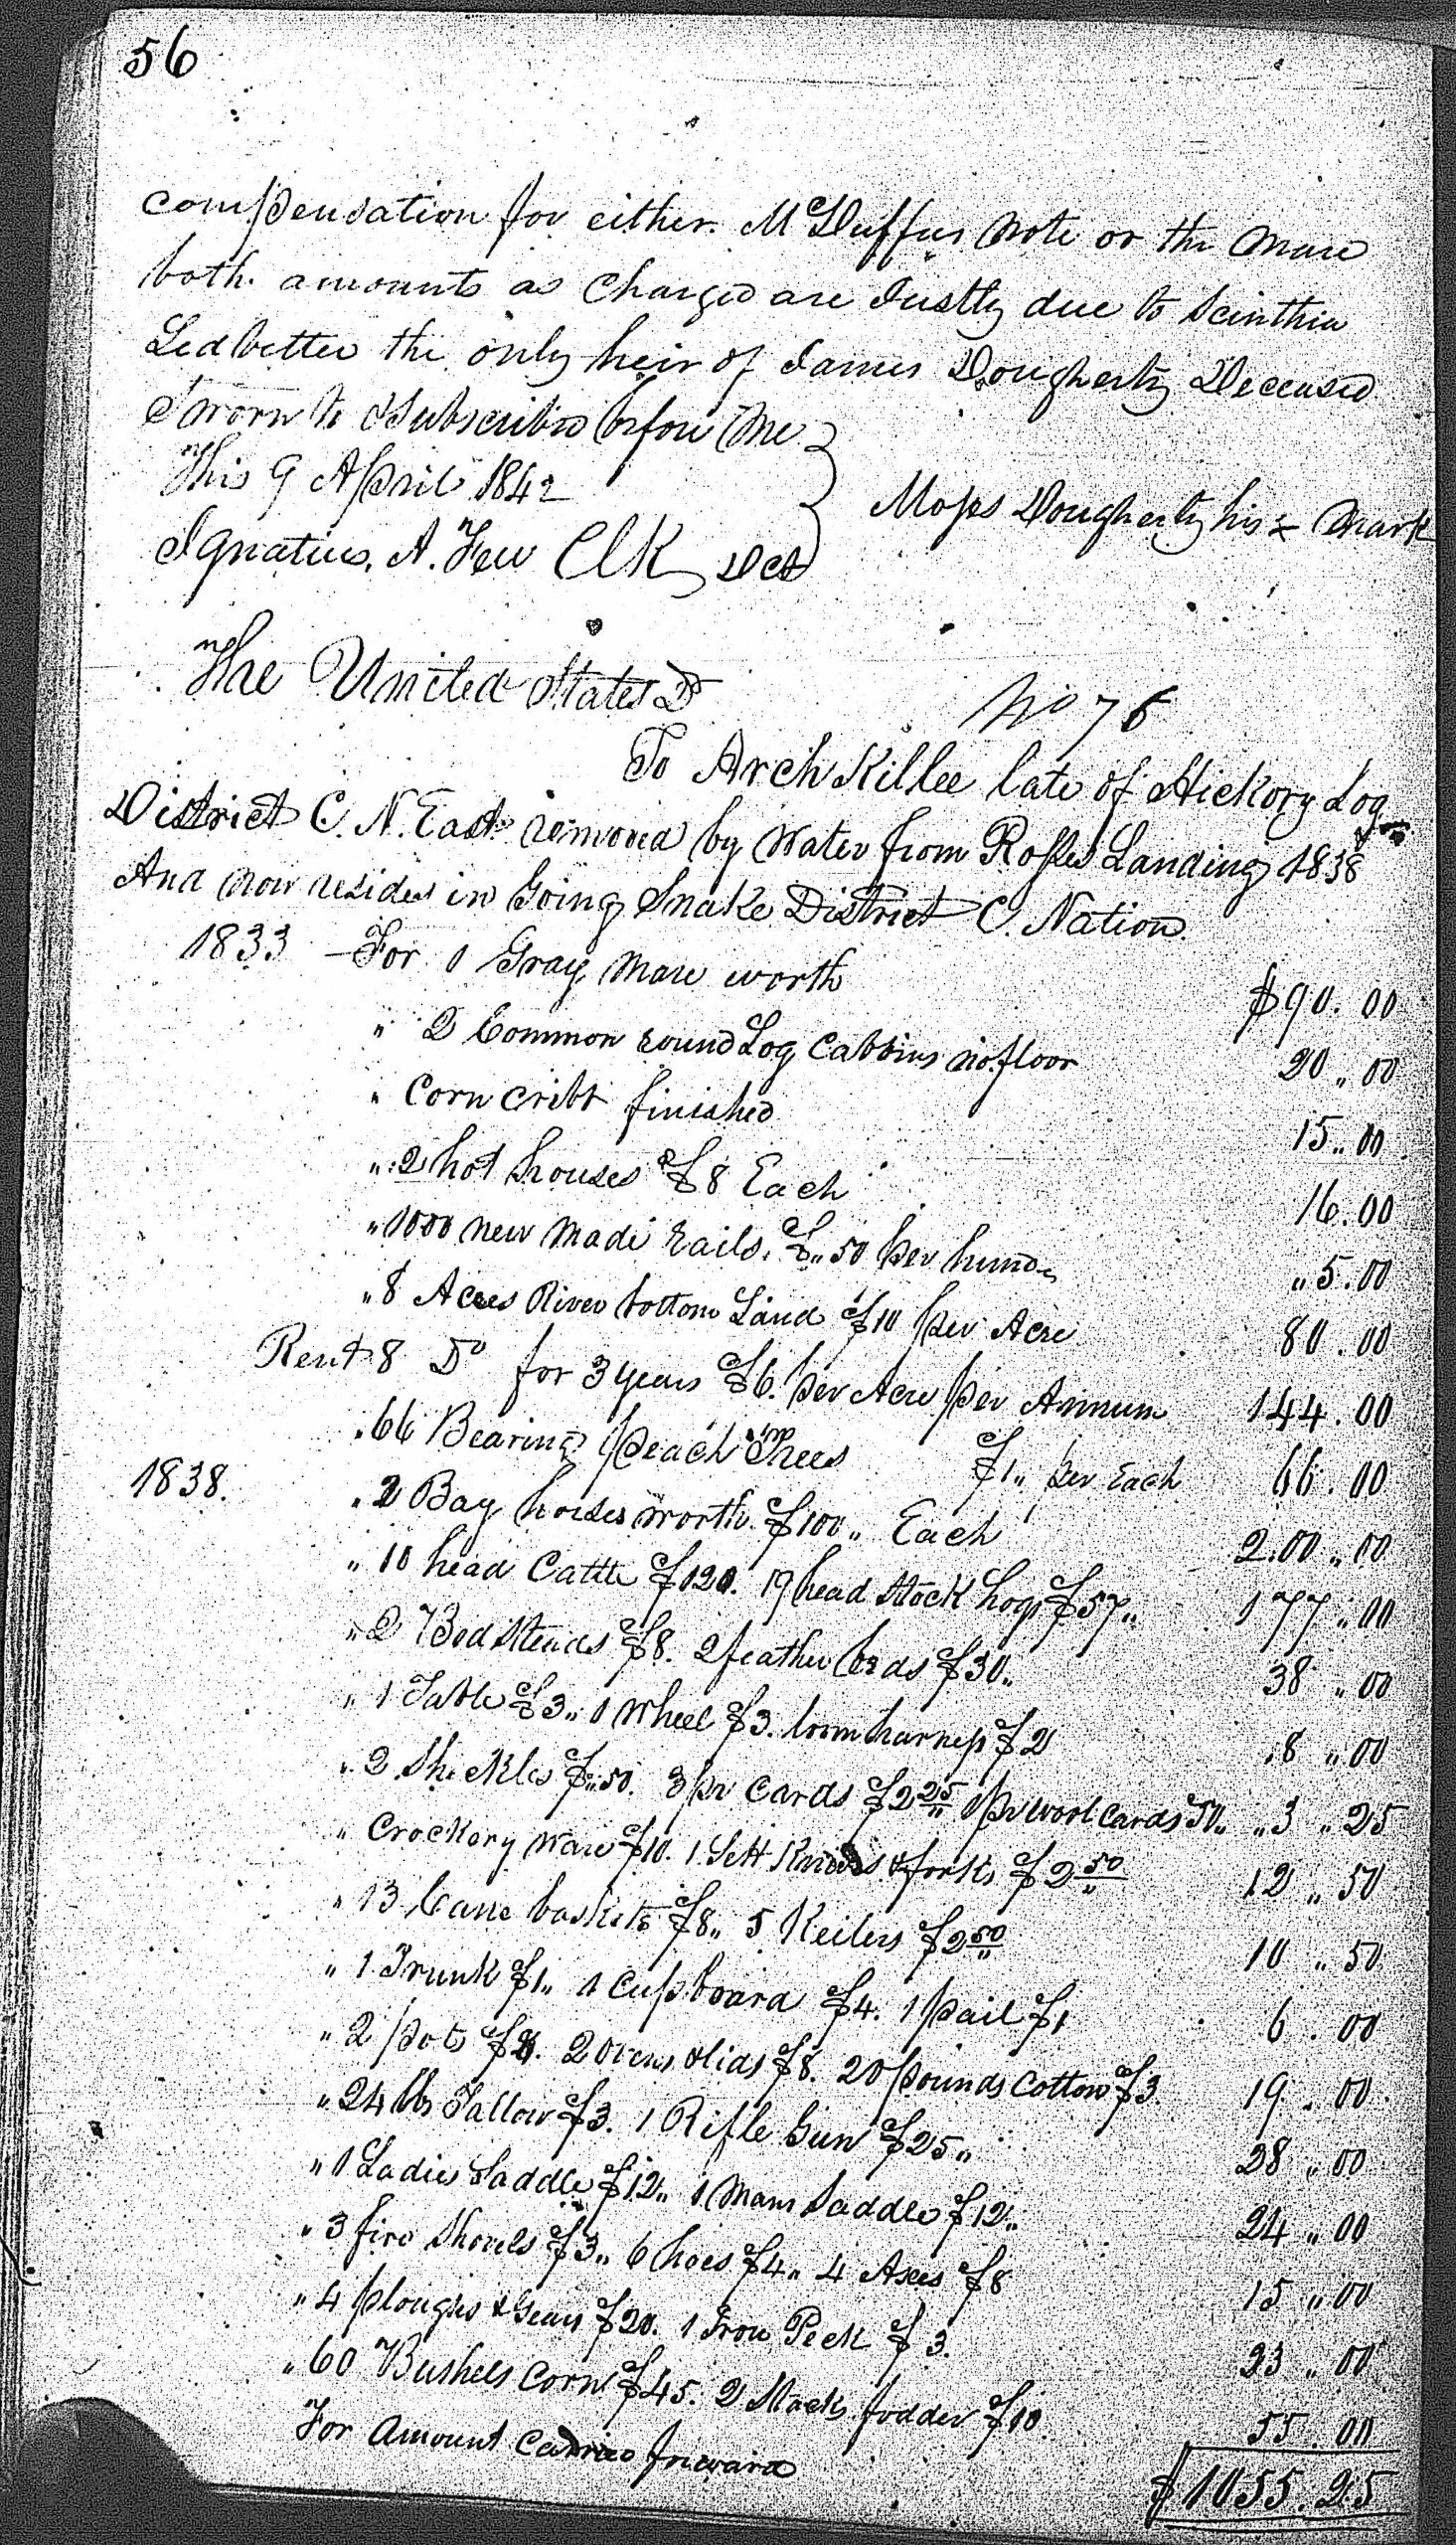 56
compensation for either McDuffus note or the mare
both amounts as Charged are Justly due to Scinthia
Ledbetter the only heir of James Dougherty Deceased
Sworn to & Subscribed before Me
This 9 April 1842
Moses Dougherty his x mark
Ignatius. A. Few Clk Dct
The United States Dr
No 76
To Arch Killee late of Hickory Log
District C. N. East removed by Water from Rosses Landing 1838
And now resides in Going Snake District C. Nation.
1833 – For 1 Gray Mare worth $90.00
" 2 Common round Log Cabbins no floor 20 " 00
" Corn cribb finished 15 " 00
" 2 hot houses $8 Each 16.00
" 1000 new Made rails. $ " 50 per hund " 5.00
" 8 Acres River bottom Land $10 per Acre 80.00
Rent 8 Do for 3 years $6. per Acre per Annum 144.00
" 66 Bearing peach Trees $1 " per Each 66.00
1838. " 2 Bay horses worth $100 " Each 200 " 00
" 10 head Cattle $120. 19 head Stock hogs $57 " 177 " 00
" 2 Bed Steads $8. 2 feather beds $30 " 38 " 00
" 1 Table $3 " 1 Wheel $3. loom harness $2 8 " 00
" 2 Sheckles $ " 50. 3 pr Cards $2 25 1 pr wool cards 50 " " 3 " 25
" Crockery Ware $10. 1 Sett Knives & forks $2 50 12 " 50
" 13 Cane baskets $8 " 5 Keilers $2 50 10 " 50
" 1 Trunk $1 " 1 Cupboard $4. 1 pail $1 6.00
" 2 pots $8. 2 ovens & lids $8. 20 pounds Cotton $3. 19.00
" 24 lbs Tallow $3. 1 Rifle Gun $25 " 28 " 00
" 1 Ladies Saddle $12 " 1 Mans Saddle $12 " 24 " 00
" 3 fire Shovels $3 " 6 hoes $4 " 4 Axes $8 15 " 00
" 4 ploughs & Gears $20. 1 Iron Peck $3. 23 " 00
" 60 Bushels Corn $45. 2 Stacks fodder $10 55.00
For Amount Carried forward $1055.25